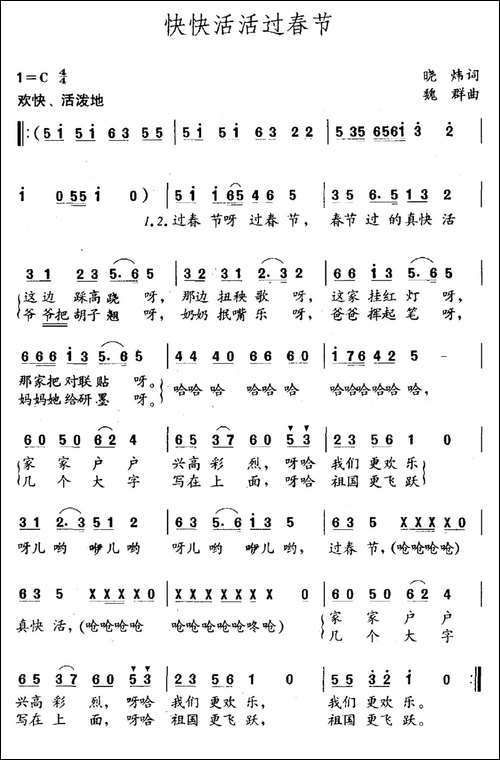 快快活活过春节
1=C 4/4
晓 炜词
欢快、活泼地
魏 群曲
‖:(5i 5i 63 55 | 5i 5i 63 22 | 535 6561 3 2 |
i 0551 i 0) | 5i i65 465 | 35 6.5 132 |
1.2.过春 节呀 过春 节, 春节 过 的真快 活
31 23 5.6 5 | 32 31 2.3 2 | 66 i3 5.6 5 |
这边 踩高跷 呀, 那边 扭秧歌 呀, 这家 挂红灯 呀,
爷爷把 胡子翘 呀, 奶奶 抿嘴乐 呀, 爸爸 挥起笔 呀,
666 i3 5.6 5 | 44 40 66 60 | i76425 - |
那家把 对联贴 呀。哈哈 哈 哈哈 哈 哈哈哈哈哈哈,
妈妈她 给研墨 呀。
60 50 62 4 | 65 37 60 53 | 23 56 1 0 |
家 家 户 户 兴高 彩 烈, 呀哈 我们 更欢 乐
几 个 大 字 写在 上 面, 呀哈 祖国 更飞 跃
31 2.3 51 2 | 63 5.6 i3 5 | 63 5 XXXX0 |
呀儿 哟 咿儿 哟 呀儿 哟 咿儿 哟, 过春 节,(呛呛呛呛)
63 5 XXXX0 | XX XX XX X 0 | 60 50 62 4 |
真快 活,(呛呛呛呛 呛呛呛呛呛咚呛) 家 家 户 户
几 个 大 字
65 37 60 53 | 23 56 1 0 | 55 32 1 0 :‖
兴高 彩 烈, 呀哈 我们 更欢 乐, 我们 更欢 乐。
写在 上 面, 呀哈 祖国 更飞 跃, 祖国 更飞 跃。